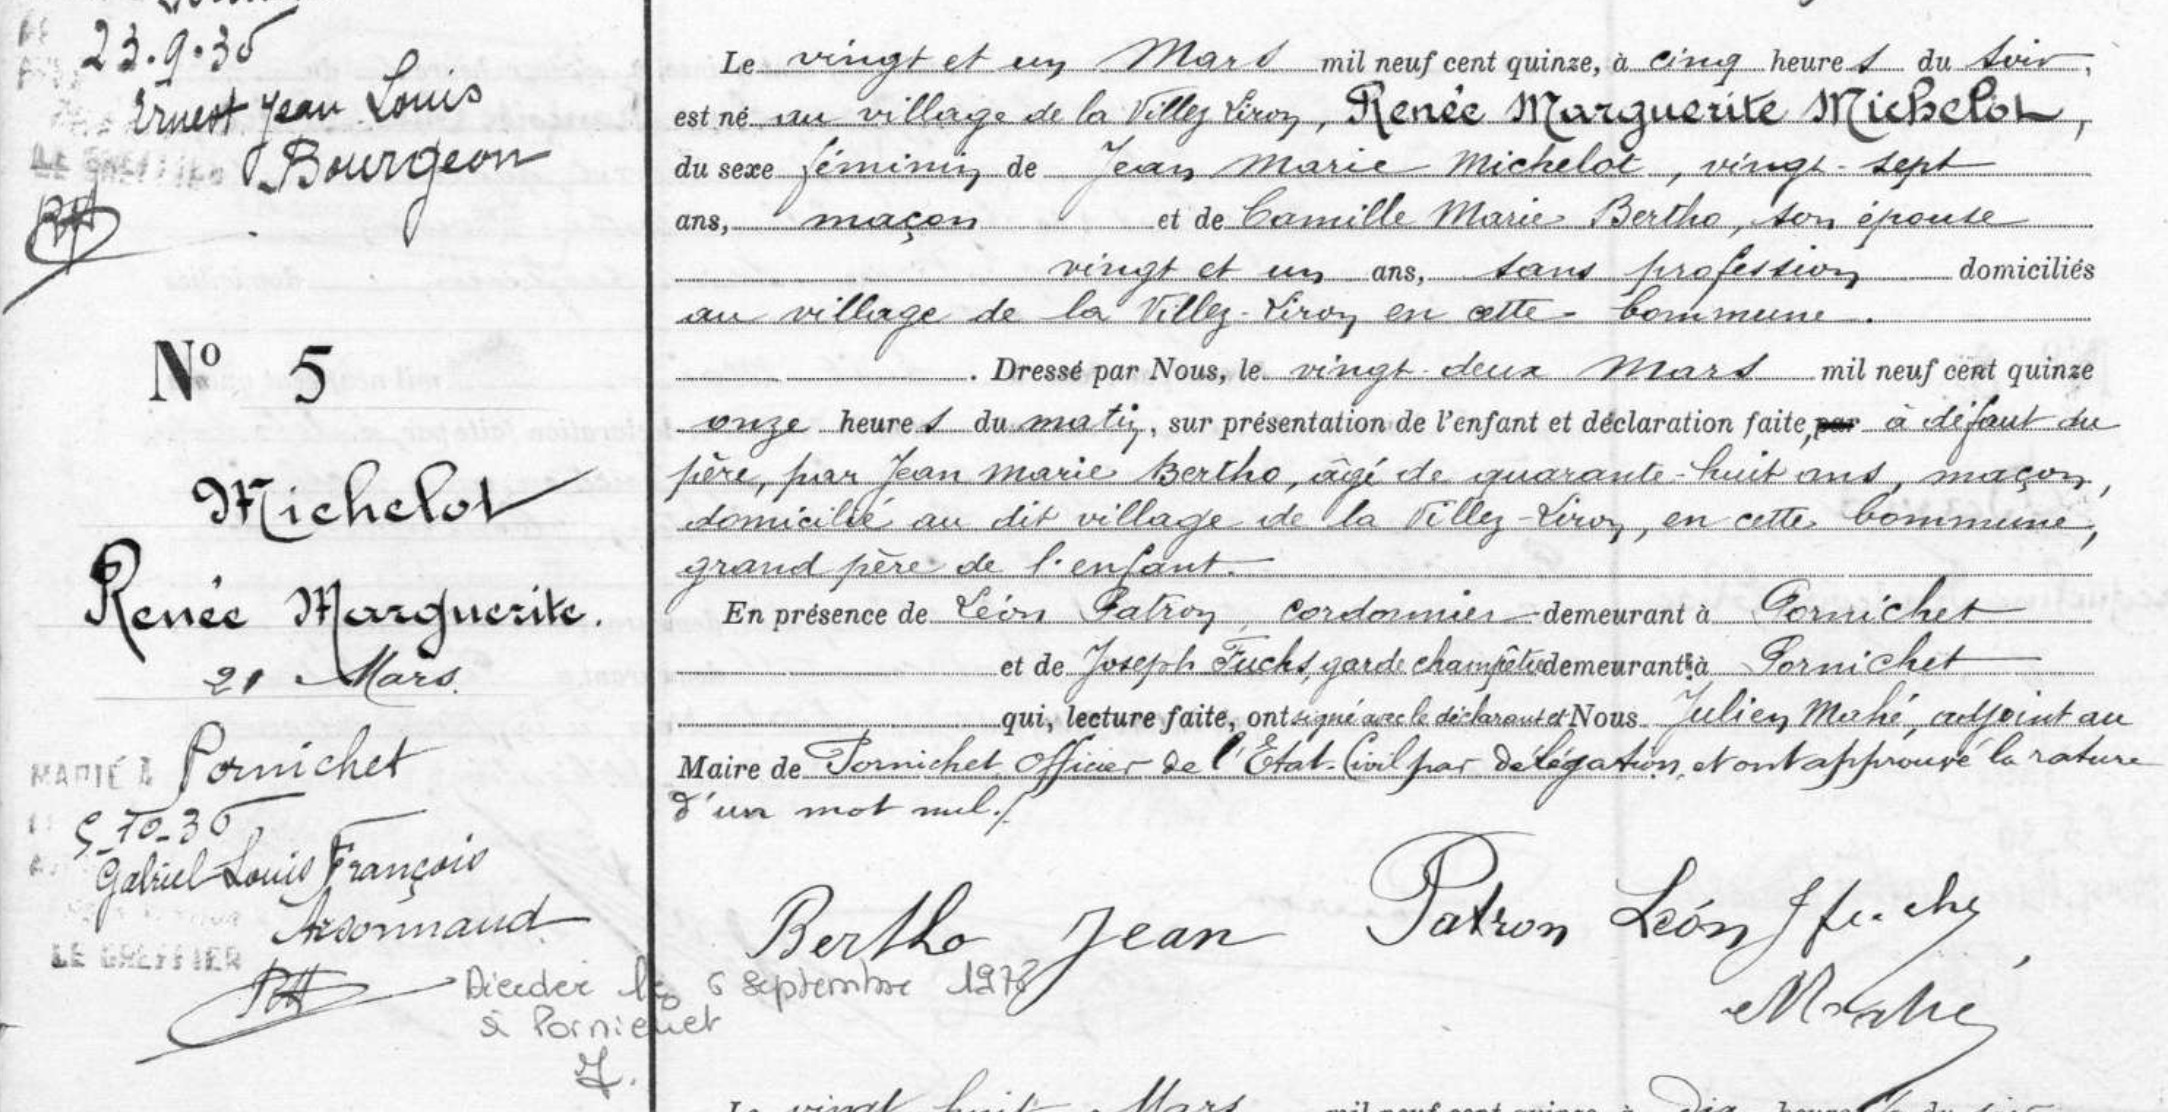 23.9.36
Ernest Jean Louis
Bourgeon
LE GREFFIER
Nº 5
Michelot
Renée Marguerite.
21 Mars.
MARIÉ À Pornichet
5-10-36
Gabriel Louis François
Arsonnaud
LE GREFFIER
Décéder le 6 Septembre 1978
à Pornichet
Le vingt et un Mars mil neuf cent quinze, à cinq heures du soir,
est né au village de la Villez Liron, Renée Marguerite Michelot,
du sexe féminin de Jean Marie Michelot, vingt-sept
ans, maçon et de Camille Marie Bertho, son épouse
vingt et un ans, sans profession domiciliés
au village de la Villez-Liron en cette Commune.
. Dressé par Nous, le vingt-deux Mars mil neuf cent quinze
onze heures du matin, sur présentation de l'enfant et déclaration faite, par à défaut du
père, par Jean Marie Bertho, âgé de quarante-huit ans, maçon,
domicilié au dit village de la Villez-Liron, en cette Commune,
grand père de l'enfant.
En présence de Léon Patron, cordonnier demeurant à Pornichet
et de Joseph Fuchs, garde champêtre demeurants à Pornichet
qui, lecture faite, ont signé avec le déclarant et Nous Julien Mahé, adjoint au
Maire de Pornichet, Officier de l'Etat-Civil par délégation, et ont approuvé la rature
d'un mot nul./.
Bertho Jean Patron Léon J fuchs
Mahé
Le vingt huit Mars mil neuf cent quinze, à dix heures du soir